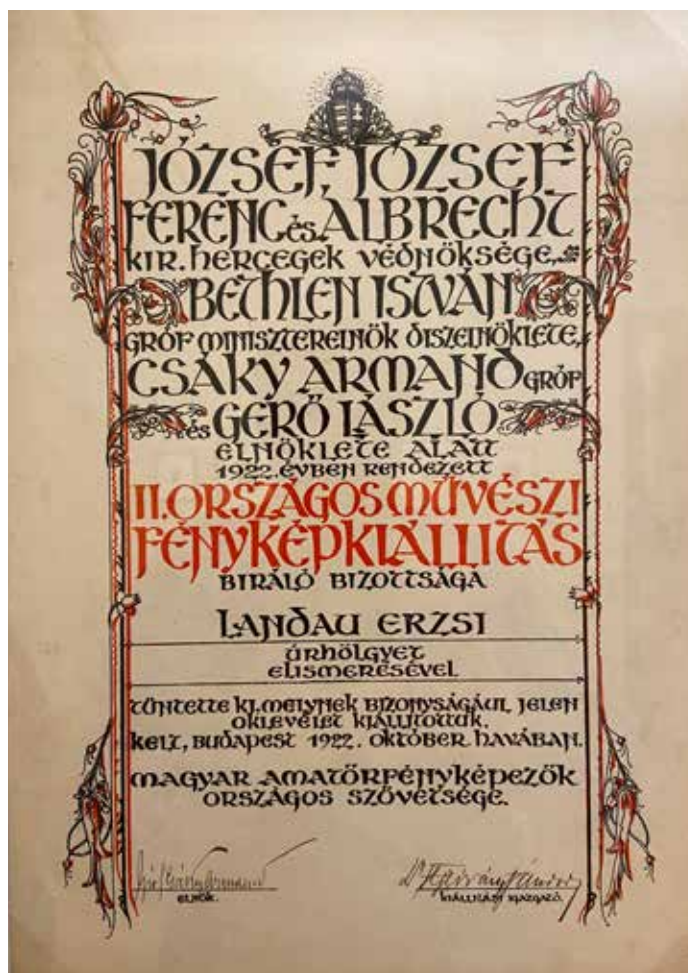 JÓZSEF, JÓZSEF
FERENC és ALBRECHT
KIR. HERCEGEK VÉDNÖKSÉGE,
BETHLEN ISTVÁN
GRÓF MINISZTERELNÖK DISZELNÖKLETE,
CSÁKY ARMAND GRÓF
és GERŐ LÁSZLÓ
ELNÖKLETE ALATT
1922. ÉVBEN RENDEZETT
II. ORSZÁGOS MŰVÉSZI
FÉNYKÉPKIÁLLITÁS
BIRÁLÓ BIZOTTSÁGA
LANDAU ERZSI
ÚRHÖLGYET
ELISMERÉSÉVEL
TÜNTETTE KI, MELYNEK BIZONYSÁGÁUL JELEN
OKLEVELET KIÁLLITOTTUK.
KELT, BUDAPEST 1922. OKTÓBER HAVÁBAN.
MAGYAR AMATŐRFÉNYKÉPEZŐK
ORSZÁGOS SZÖVETSÉGE.
Gróf Csáky Armand
ELNÖK.
KIÁLLITÁSI IGAZGATÓ.